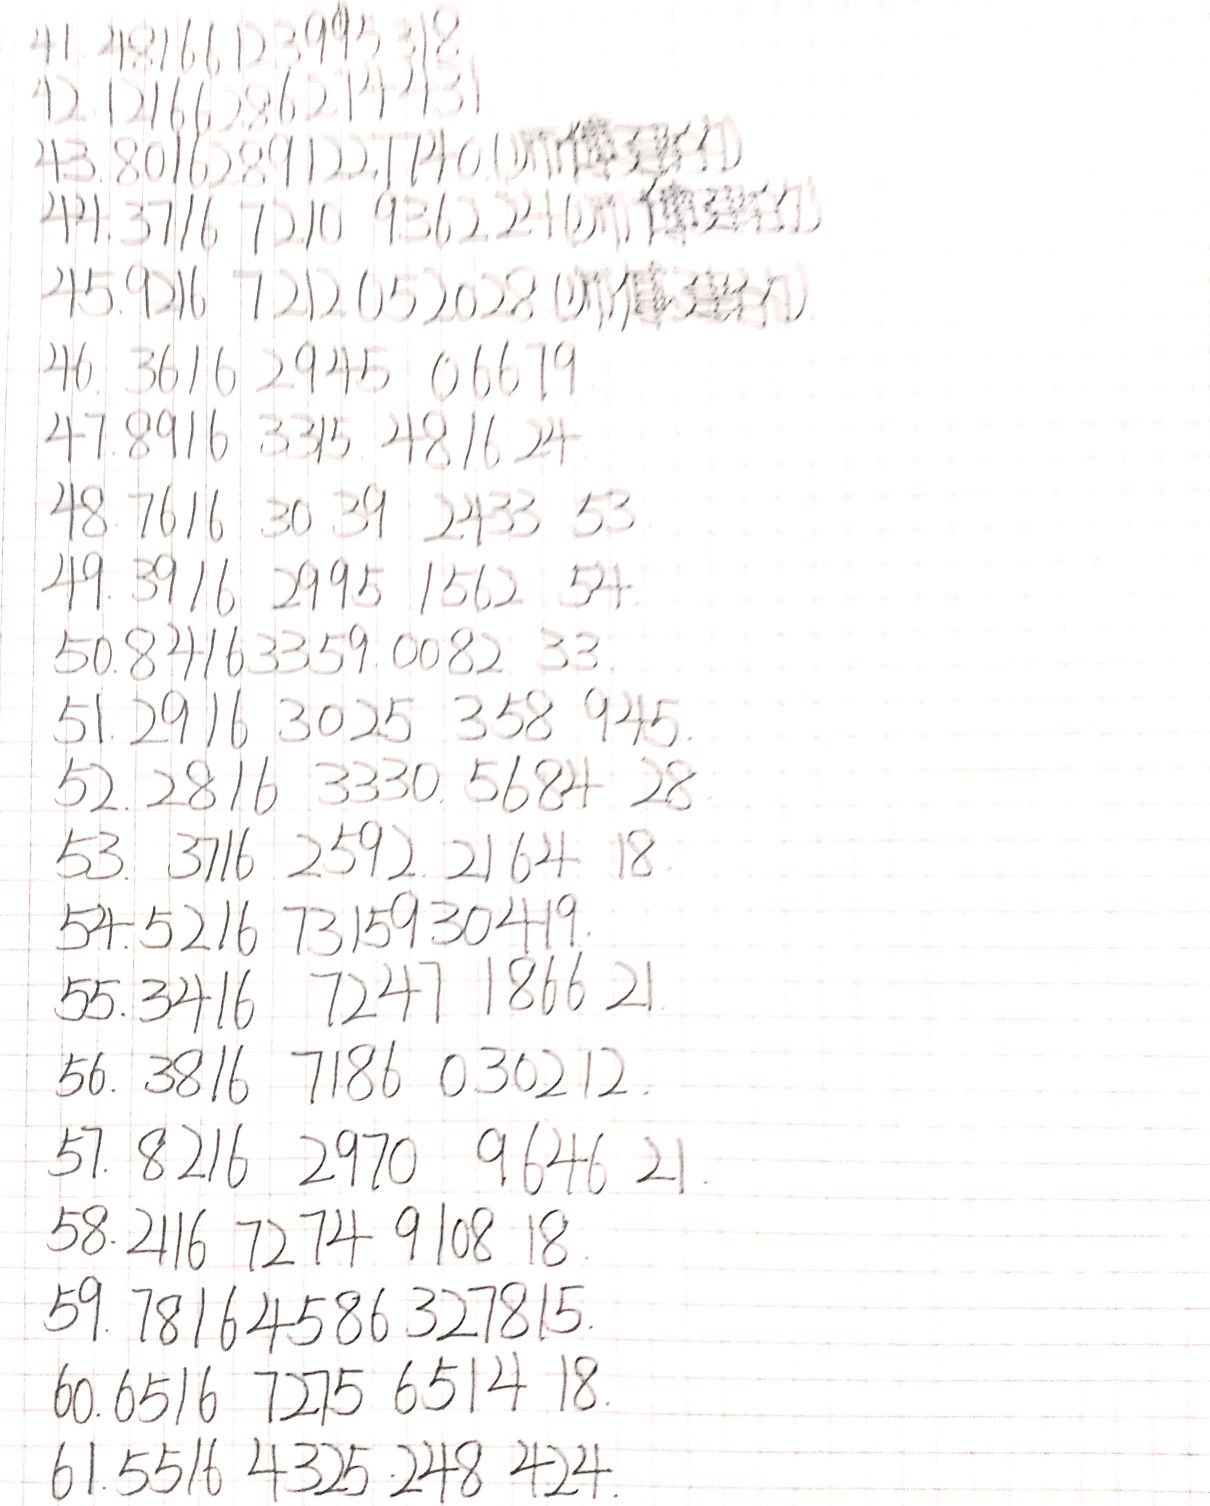 41. 4816612399 5318
42. 1216628621 4431
43. 80162891227740.(
44. 3716 7210 936224(
45. 9216 7212052028(
46. 3616 2945 06679
47. 8916 3315 4816 24
48. 7616 30 39 2433 53
49. 3916 2995 1562 54
50. 84163359.0082 33.
51. 2916 3025 358 945.
52. 2816 3330. 5684 28
53. 3716 2592. 2164 18
54. 5216 7315930419.
55. 3416 7247 1866 21.
56. 3816 7186 030212.
57. 8216 2970 9646 21.
58. 2116 7274 9108 18.
59. 78164586327815.
60. 6516 7275 6514 18.
61. 5516 4325.248 424.